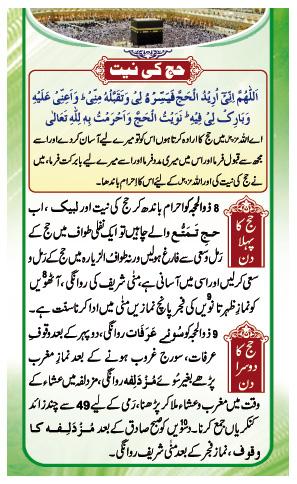 حج کی نیت
اَللّٰھُمَّ اِنِّیۡۤ اُرِیۡدُ الۡحَجَّ فَیَسِّرۡہُ لِیۡ وَتَقَبَّلۡہُ مِنِّیۡ ؕ وَاَعِنِّیۡ عَلَیۡہِ
وَبَارِکۡ لِیۡ فِیۡہِ ؕ نَوَیۡتُ الۡحَجَّ وَاَحۡرَمۡتُ بِہٖ لِلّٰہِ تَعَالٰی
اے اللہ عزوجل میں حج کا ارادہ کرتا ہوں اس کو تو میرے لیے آسان کر دے اور
مجھ سے قبول فرما اور اس میں میری مدد فرما اور اسے میرے لیے بابرکت فرما، میں
نے حج کی نیت کی اور اللہ عزوجل کے لئے اس کا احرام باندھا۔
حج کا پہلا دن
8 ذوالحجہ کو احرام باندھ کر حج کی نیت اور لبیک، اب
حج تمتع والے چاہیں تو ایک نفلی طواف میں حج کے
رمل و سعی سے فارغ ہو لیں ورنہ طواف الزیارہ میں حج کے رمل و
سعی کر لیں اور اسی میں آسانی ہے، منٰی شریف کی روانگی، آٹھویں
کو نمازِ ظہر تا نویں کی فجر پانچ نمازیں منٰی میں ادا کرنا سنت ہے۔
حج کا دوسرا دن
9 ذوالحجہ کو سوئے عَرَفات روانگی، دوپہر کے بعد وقوفِ
عرفات، سورج غروب ہونے کے بعد نماز مغرب
پڑھے بغیر سوئے مُزْدَلِفہ روانگی، مزدلفہ میں عشاء کے
وقت میں مغرب و عشاء ملا کر پڑھنا، رمی کے لیے 49 سے چند زائد
کنکریاں جمع کرنا۔ دسویں کو صبح صادق کے بعد مُزْدَلِفہ کا
وقوف، نماز فجر کے بعد منٰی شریف روانگی۔